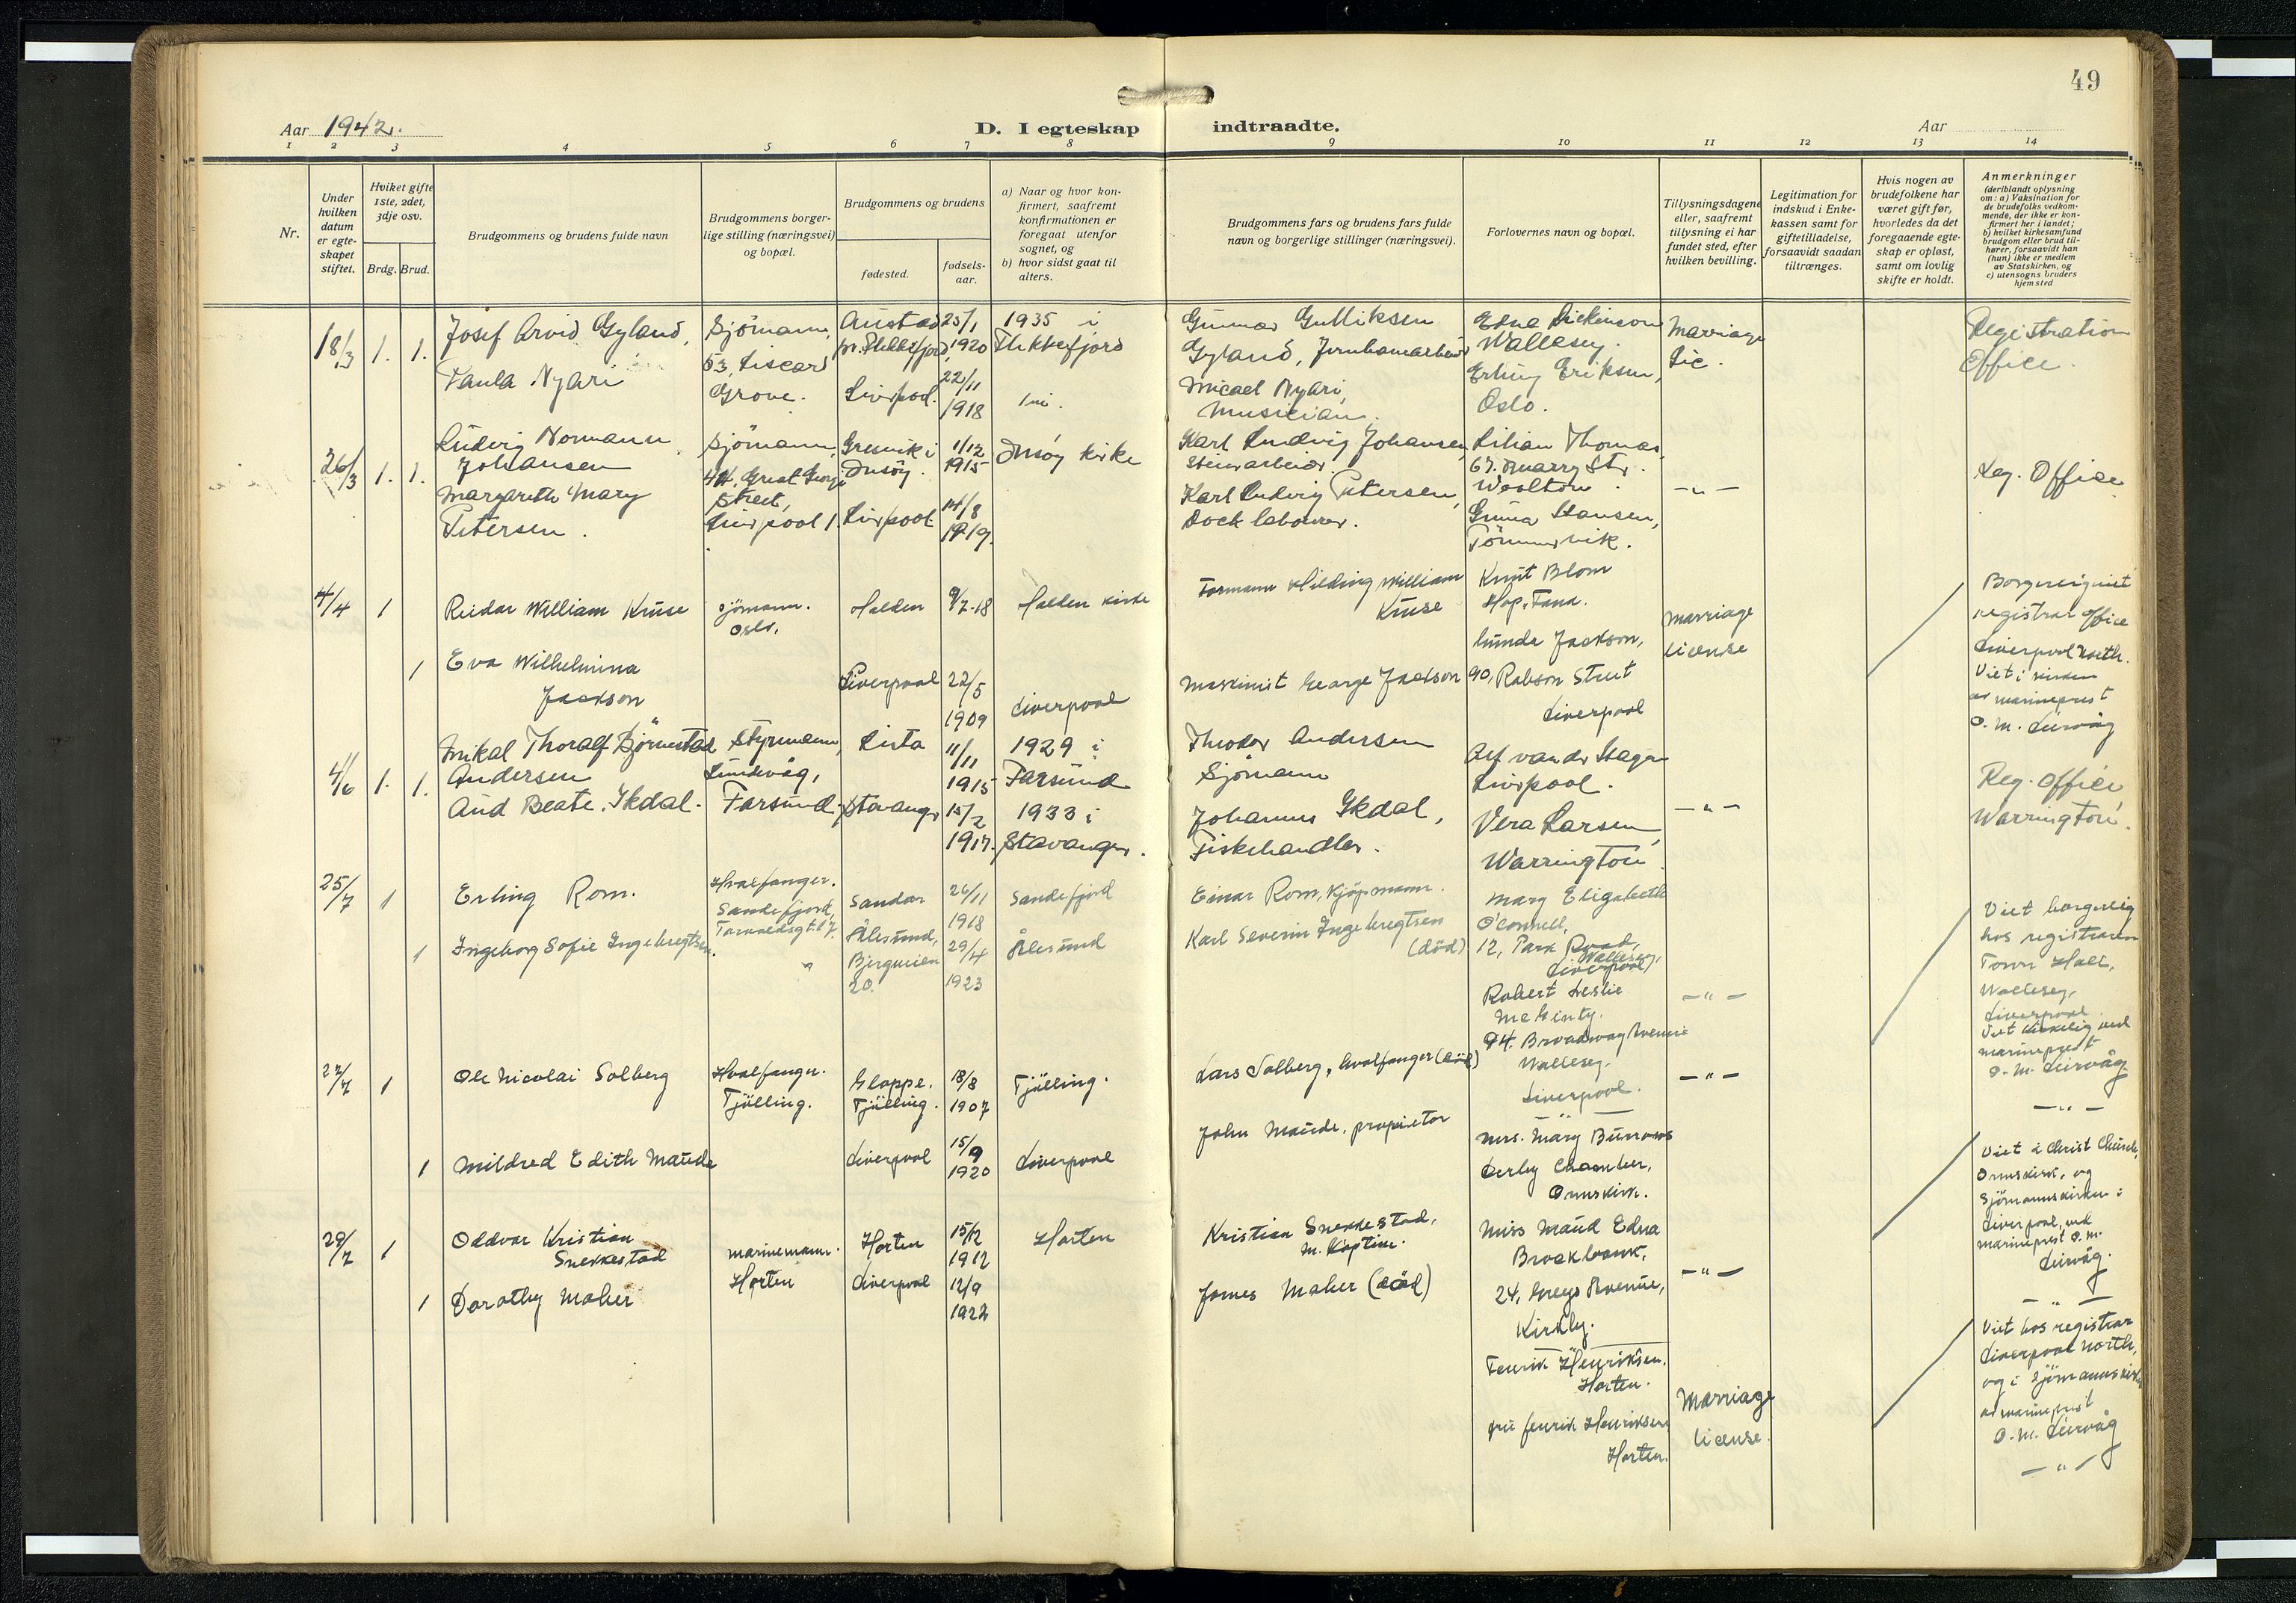 49
Aar 1942.
D. I egteskap indtraadte.
Aar
1 2 3 4 5 6 7 8 9 10 11 12 13 14
Nr.
Under hvilken datum er egteskapet stiftet.
Hvilket gifte 1ste, 2det, 3dje osv.
Brdg. Brud.
Brudgommens og brudens fulde navn
Brudgommens borgerlige stilling (næringsvei) og bopæl.
Brudgommens og brudens
fødested.
fødselsaar.
a) Naar og hvor konfirmert, saafremt konfirmationen er foregaat utenfor sognet, og
b) hvor sidst gaat til alters.
Brudgommens fars og brudens fars fulde navn og borgerlige stillinger (næringsvei).
Forlovernes navn og bopæl.
Tillysningsdagene eller, saafremt tillysning ei har fundet sted, efter hvilken bevilling.
Legitimation for indskud i Enkekassen samt for giftetilladelse, forsaavidt saadan tiltrænges.
Hvis nogen av brudefolkene har været gift før, hvorledes da det foregaaende egteskap er opløst, samt om lovlig skifte er holdt.
Anmerkninger
(deriblandt oplysning om: a) Vaksination for de brudefolks vedkommende, der ikke er konfirmert her i landet;
b) hvilket kirkesamfund brudgom eller brud tilhører, forsaavidt han (hun) ikke er medlem av Statskirken, og
c) utensogns bruders hjemsted
18/3 1. 1.
Josef Arvid Gyland,
Paula Nyari
Sjömann,
53, Liscard
Grove.
Austad
pr. Flekkefjord,
Liverpool.
25/1
1920
22/11
1918
1935 i
Flekkefjord
Gunnar Gulliksen
Gyland, Jernbanearbeider
Micael Nyari,
Musician.
Edna Dickinson
Wallasey.
Erling Eriksen,
Oslo.
Marriage
Lic.
Registration
Office.
26/3 1. 1.
Ludvig Normann
Johansen
Margareth Mary
Petersen.
Sjömann,
44, Great George
Street,
Liverpool 1.
Gressvik i
Onsøy.
Liverpool
1/12
1915
14/8
1919.
Onsøy kirke
Karl Ludvig Johansen
Steinarbeider.
Karl Ludvig Petersen,
Dock labourer.
Lilian Thomas,
67. Quarry Str.
Woolton.
Gunna Hansen,
Tömmervik.
-"-
Reg. Office
4/4 1
Reidar William Kruse
sjömann.
Oslo.
Halden
9/7-18
Halden kirke
Formann Hilding William
Kruse
Knut Blom
Hop, Fana.
1
Eva Wilhelmina
Jackson
Liverpool
22/5
1909
Liverpool
Maskinist George Jackson
Linda Jackson,
90, Robson Street
Liverpool
marriage
license
Borgerlig viet
registrar Office
Liverpool North.
Viet i kirken
av marineprest
O. M. Lervåg
4/6 1. 1.
Mikal Thoralf Bjørnestad
Andersen
Aud Beate Skdal.
Styrmann,
Lundevåg,
Farsund
Lista
Stavanger
11/11
1915
15/2
1917.
1929 i
Farsund
1933 i
Stavanger.
Theodor Andersen
Sjömann
Johannes Skdal,
Fiskehandler.
Alf van der Hagen
Liverpool.
Vera Larsen,
Warrington
-"-
Reg. Office
Warrington.
25/7 1
Erling Rom.
Hvalfanger.
Sandefjord,
Sandar
26/11
1918
Sandefjord
Einar Rom, kjöpmann.
Mary Elizabeth
O'Connell,
12, Park Road,
Wallasey,
Liverpool
1
Ingeborg Sofie Ingebregtsen.
"
Ålesund,
20.
29/4
1923
Ålesund
Karl Severin Ingebregtsen
(död)
Robert Leslie
McGinty.
94. Broadway Avenue
Wallasey.
Liverpool.
-"-
Viet borgerlig
hos registraren
Town Hall,
Wallasey,
Liverpool.
Viet kirkelig ved
marineprest
O. M. Lervåg.
-"-
27/7 1
Ole Nicolai Solberg
Hvalfanger.
Tjölling.
Gloppe.
Tjölling.
18/8
1907
Tjölling.
Lars Solberg, hvalfanger (död)
-"-
1
Mildred Edith Maude
Liverpool
15/9
1920
Liverpool
John Maude, proprietor
Mrs. Mary Burrows
Derby Chamber,
Ormskirk.
Miss Maud Edna
Brockbank,
24, Greys Avenue,
Kirkby.
-"-
Viet i Christ Church,
Ormskirk, og
Sjömannskirken i
Liverpool, ved
marineprest O. M.
Lervåg.
-"-
29/7 1
Oddvar Kristian
Snekkestad
marinemann.
Horten
Horten
15/12
1912
Horten
Kristian Snekkestad,
m. Kaptein.
1
Dorothy Maher
Liverpool
12/9
1922
James Maher (död)
-"-
Fenrik Henriksen,
Horten.
fru fenrik Henriksen
Horten.
Marriage
license.
Viet hos registrar
Liverpool North,
og i Sjömannskirken
av marineprest
O. M. Lervåg
-"-